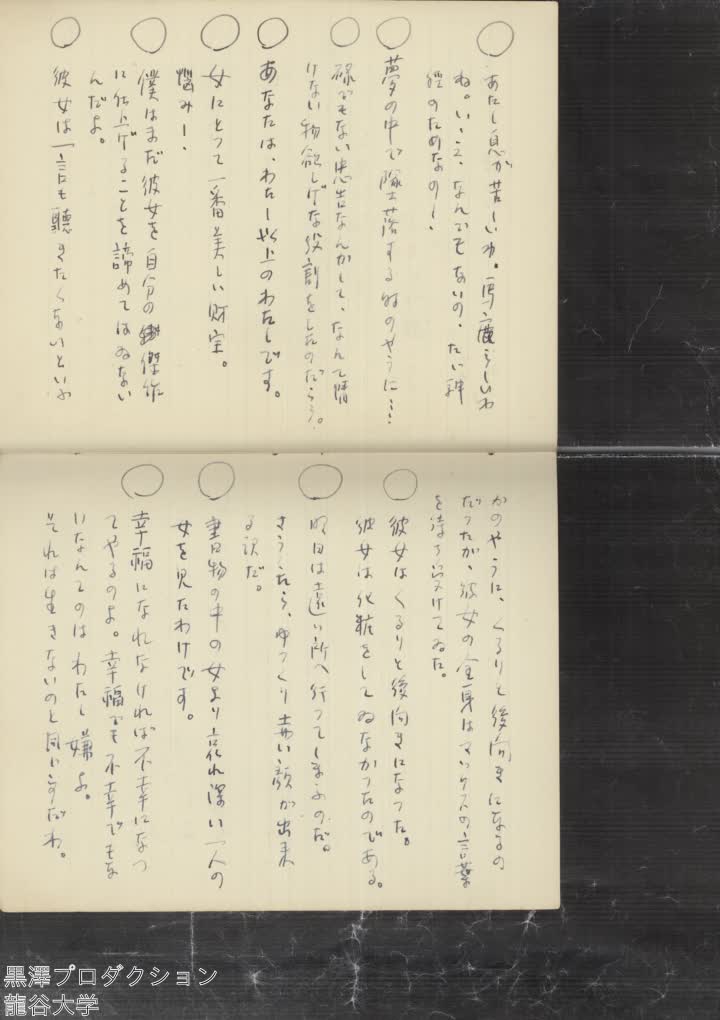 ○ あたし息が苦しいわ。馬鹿らしいわ
ね。いゝえ、なんでもないの、たゞ神
経のためなの！
○ 夢の中で墜落する時のやうに…
○ 碌でもない思出なんかして、なんて情
けない物欲しげな役割をしたのだらう。
○ あなたは、わたし以上のわたしです。
○ 女にとつて一番と美しい財宝。
悩み！
○ 僕はまだ彼女を自分の傑作
に仕上げることを諦めてはゐない
んだよ。
○ 彼女は一言も聴きたくないといふ
かのやうに、くるりと後向きになるの
だつたが、彼女の全身はマックスの言葉
を待ち受けてゐた。
○ 彼女はくるりと後向きになつた。
彼女は化粧をしてゐなかつたのである。
○ 明日は遠い所へ行つてしまふのだ。
さうしたら、ゆつくり青い顔が出来
る訳だ。
○ 書物の中の女より哀れ深い一人の
女を見たわけです。
○ 幸福になれなければ不幸になつ
てやるのよ。幸福でも不幸でもな
いなんてのはわたし嫌よ。
それは生きないのと同じすだわ。
黒澤プロダクション
龍谷大学